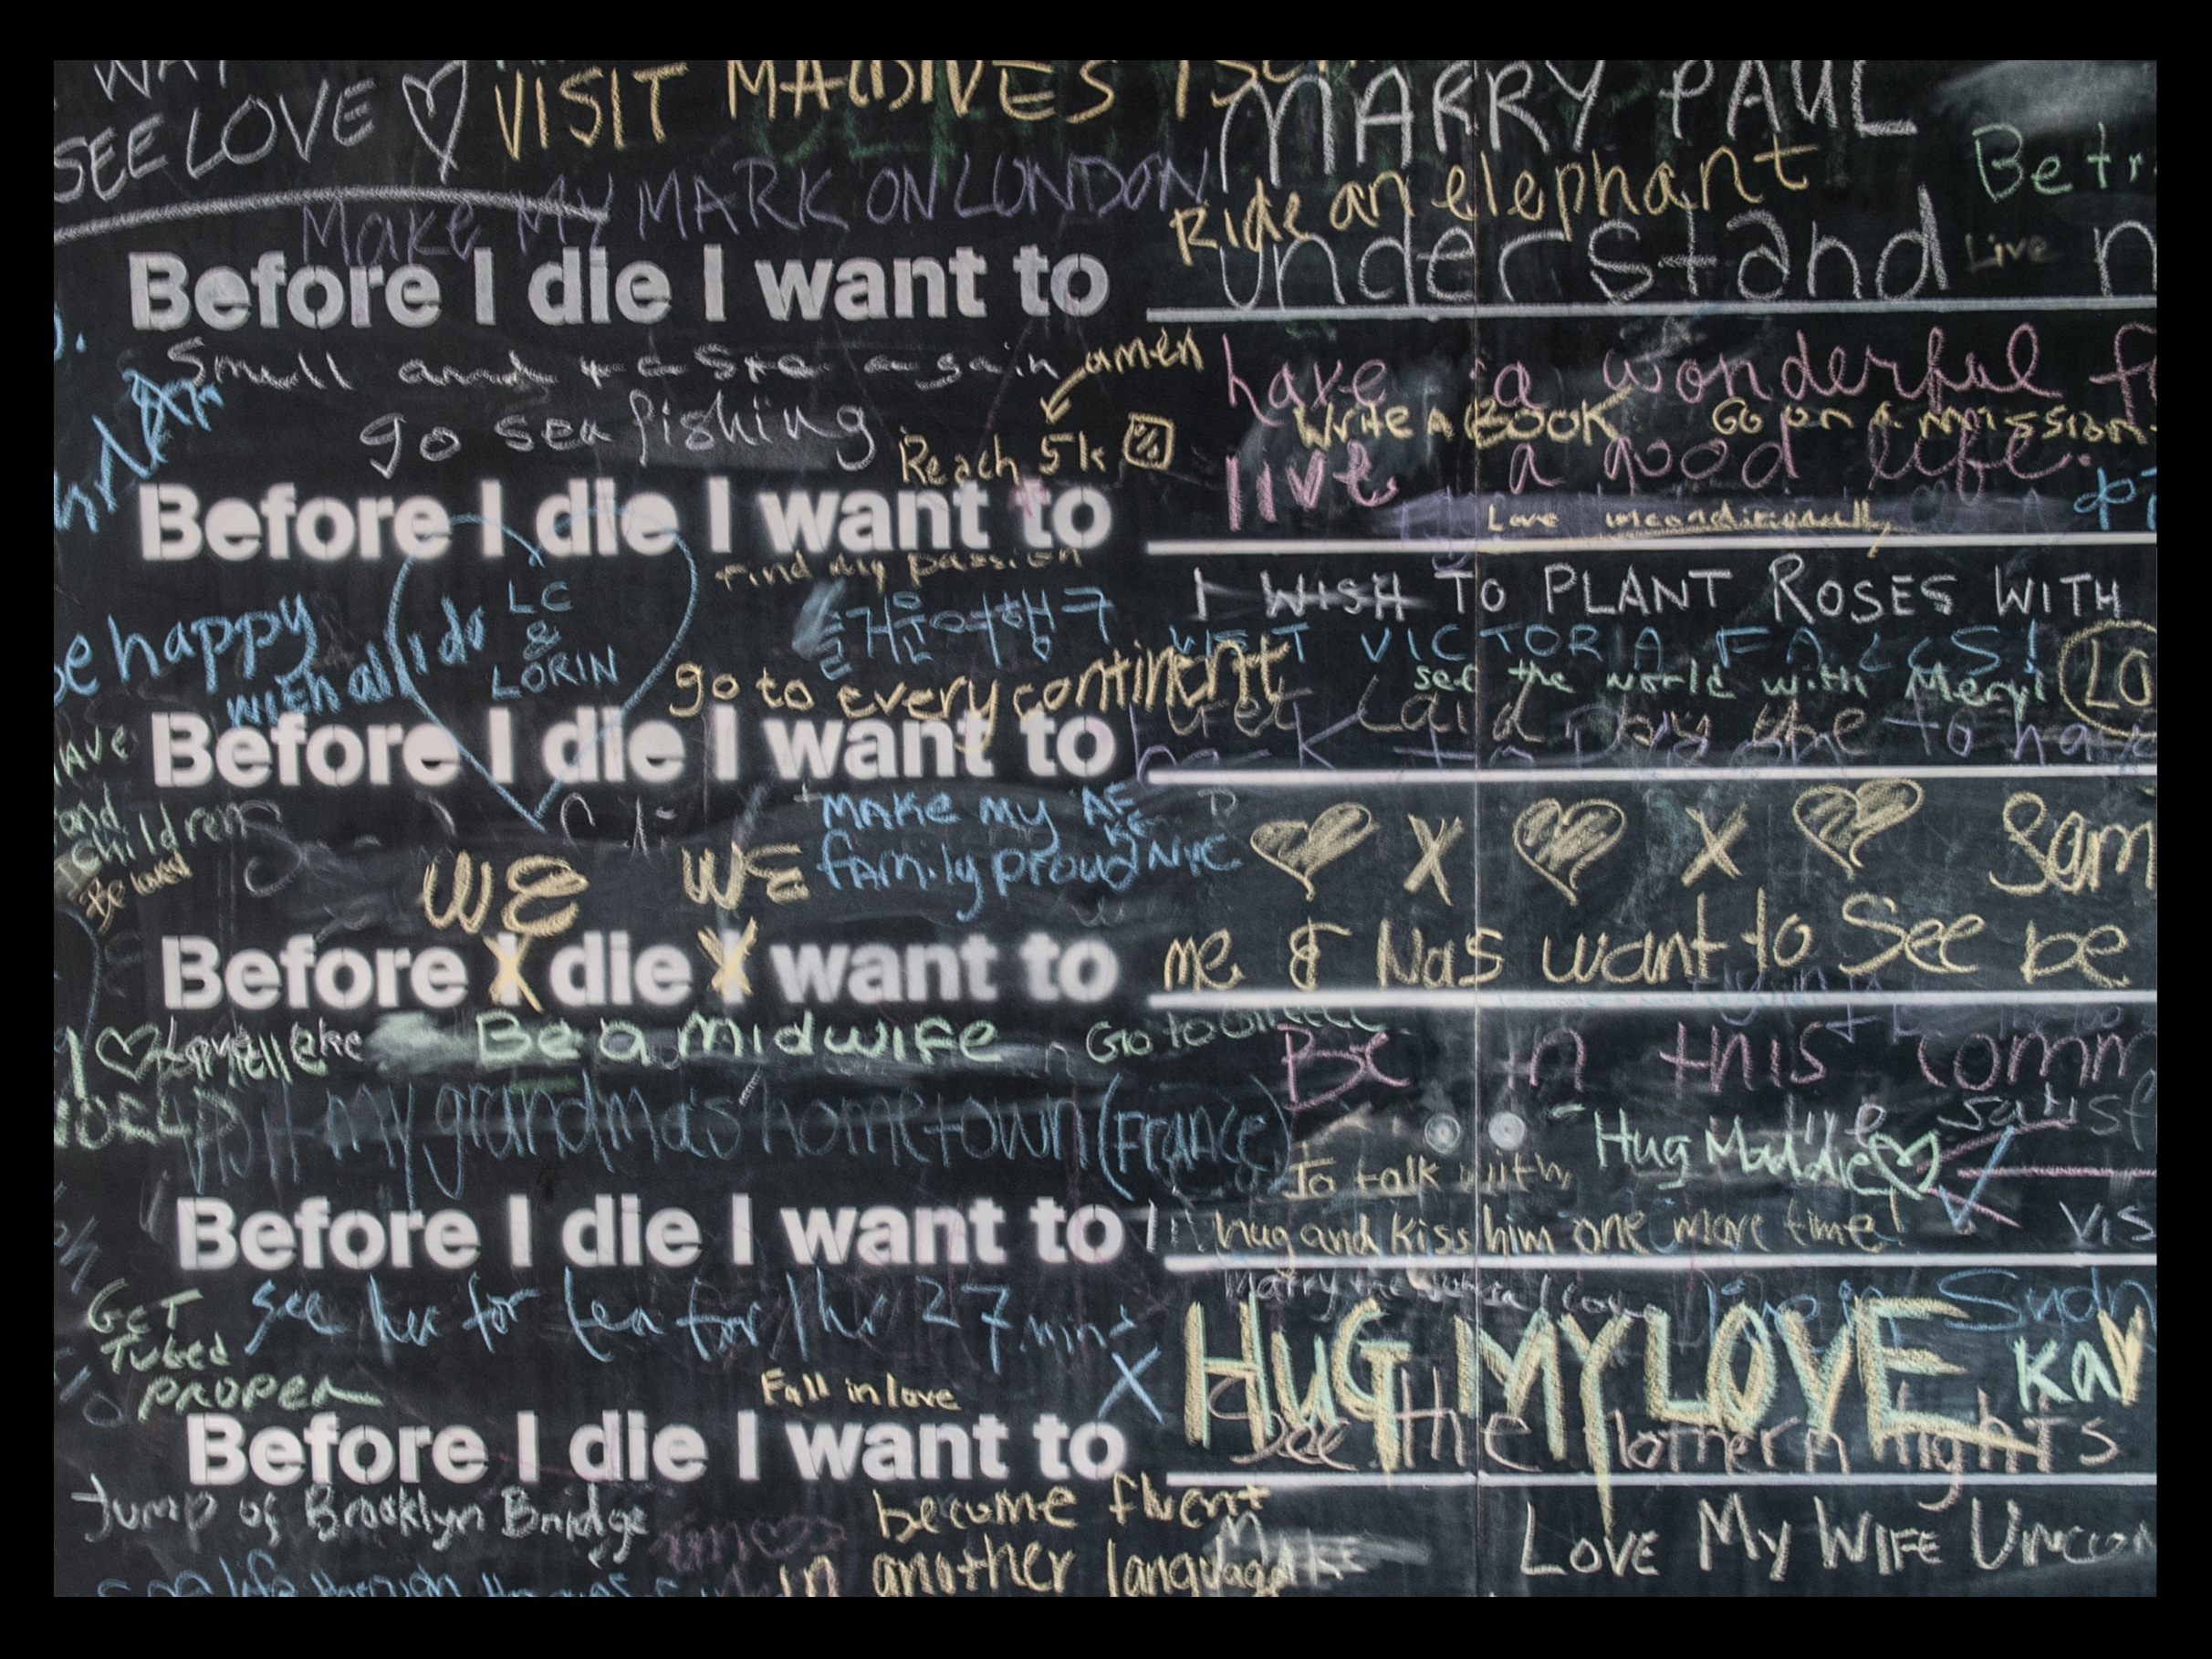 WAY
SEE LOVE
VISIT MALDIVES
MARRY PAUL
MAKE MY MARK ON LONDON
Ride an elephant
Be
Before I die I want to
understand
Live
Smell and taste again
amen
have a wonderful
go sea fishing
Reach 5k
Write A BOOK
Go on a mission
live a good life.
Before I die I want to
Love unconditionally
find my passion
I WISH TO PLANT ROSES WITH
LC
&
LORIN
즐거운여행
be happy
with all I do
VISIT VICTORIA FALLS!
go to every continent
see the world with Meryl
LO
Get Laid
Before I die I want to
back to
to
HAVE
and
children
Be loved
MAKE MY
family proud
NYC
X X Sam
WE WE
Before I die I want to
me & Nas want to See be
Love
Be a Midwife
Go to
Be in this comm
Visit my grandma's hometown (France)
life
satisf
Hug Maddie
To talk with
Before I die I want to
hug and kiss him one more time!
VIS
GET
Tubed
PROPER
see her for tea for 1 hr 27 mins
X
Marry me
Live in Sydn
HUG MY LOVE KAY
Fall in love
See the Nothern lights
Before I die I want to
Jump of Brooklyn Bridge
become fluent
in another language
LOVE MY WIFE UNCON